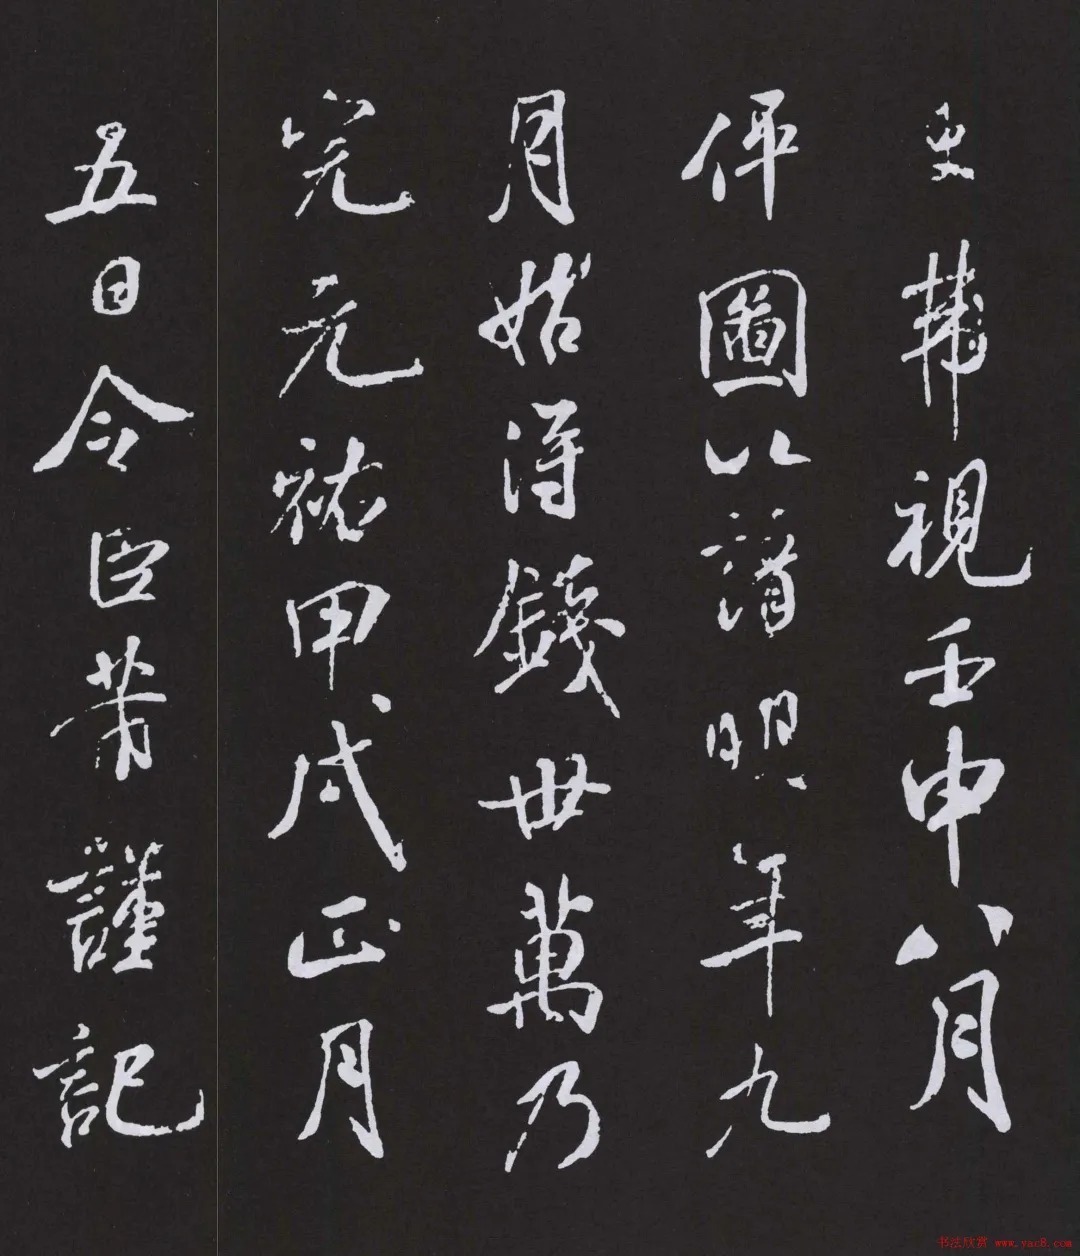 吏韩視壬申八月
伻圖以請明年九
月始得錢卅萬乃
完元祐甲戌正月
五日令臣芾謹記
书法欣赏 www.yac8.com